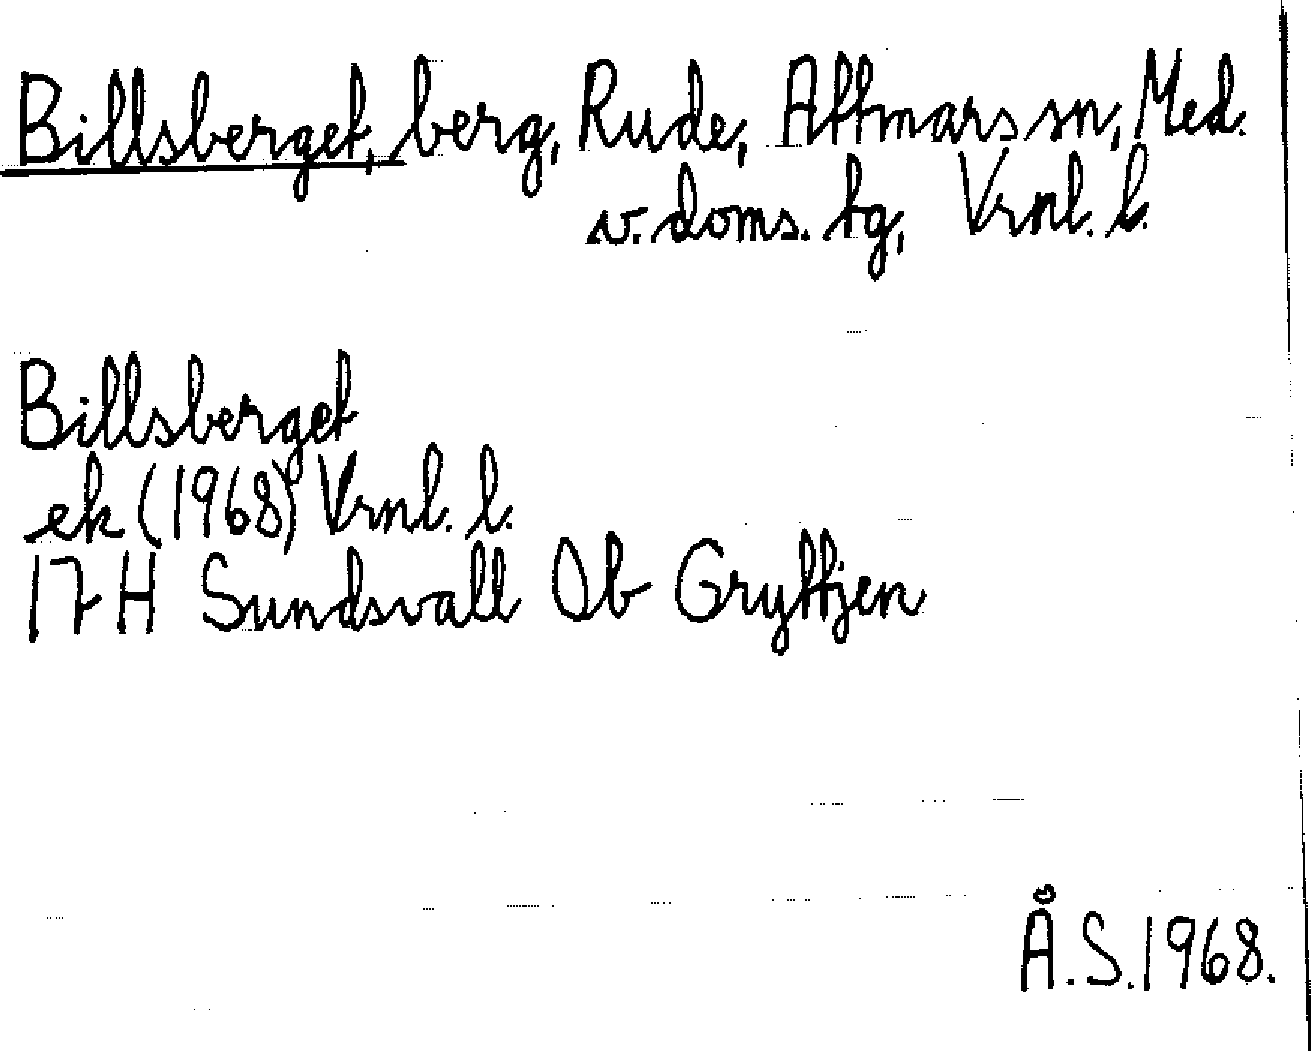 Billsberget, berg, Rude, Attmars sn, Med.
v. doms. tg, Vrnl. l.
Billsberget
ek (1968) Vrnl. l.
17 H Sundsvall Ob Gryttjen
Å.S. 1968.